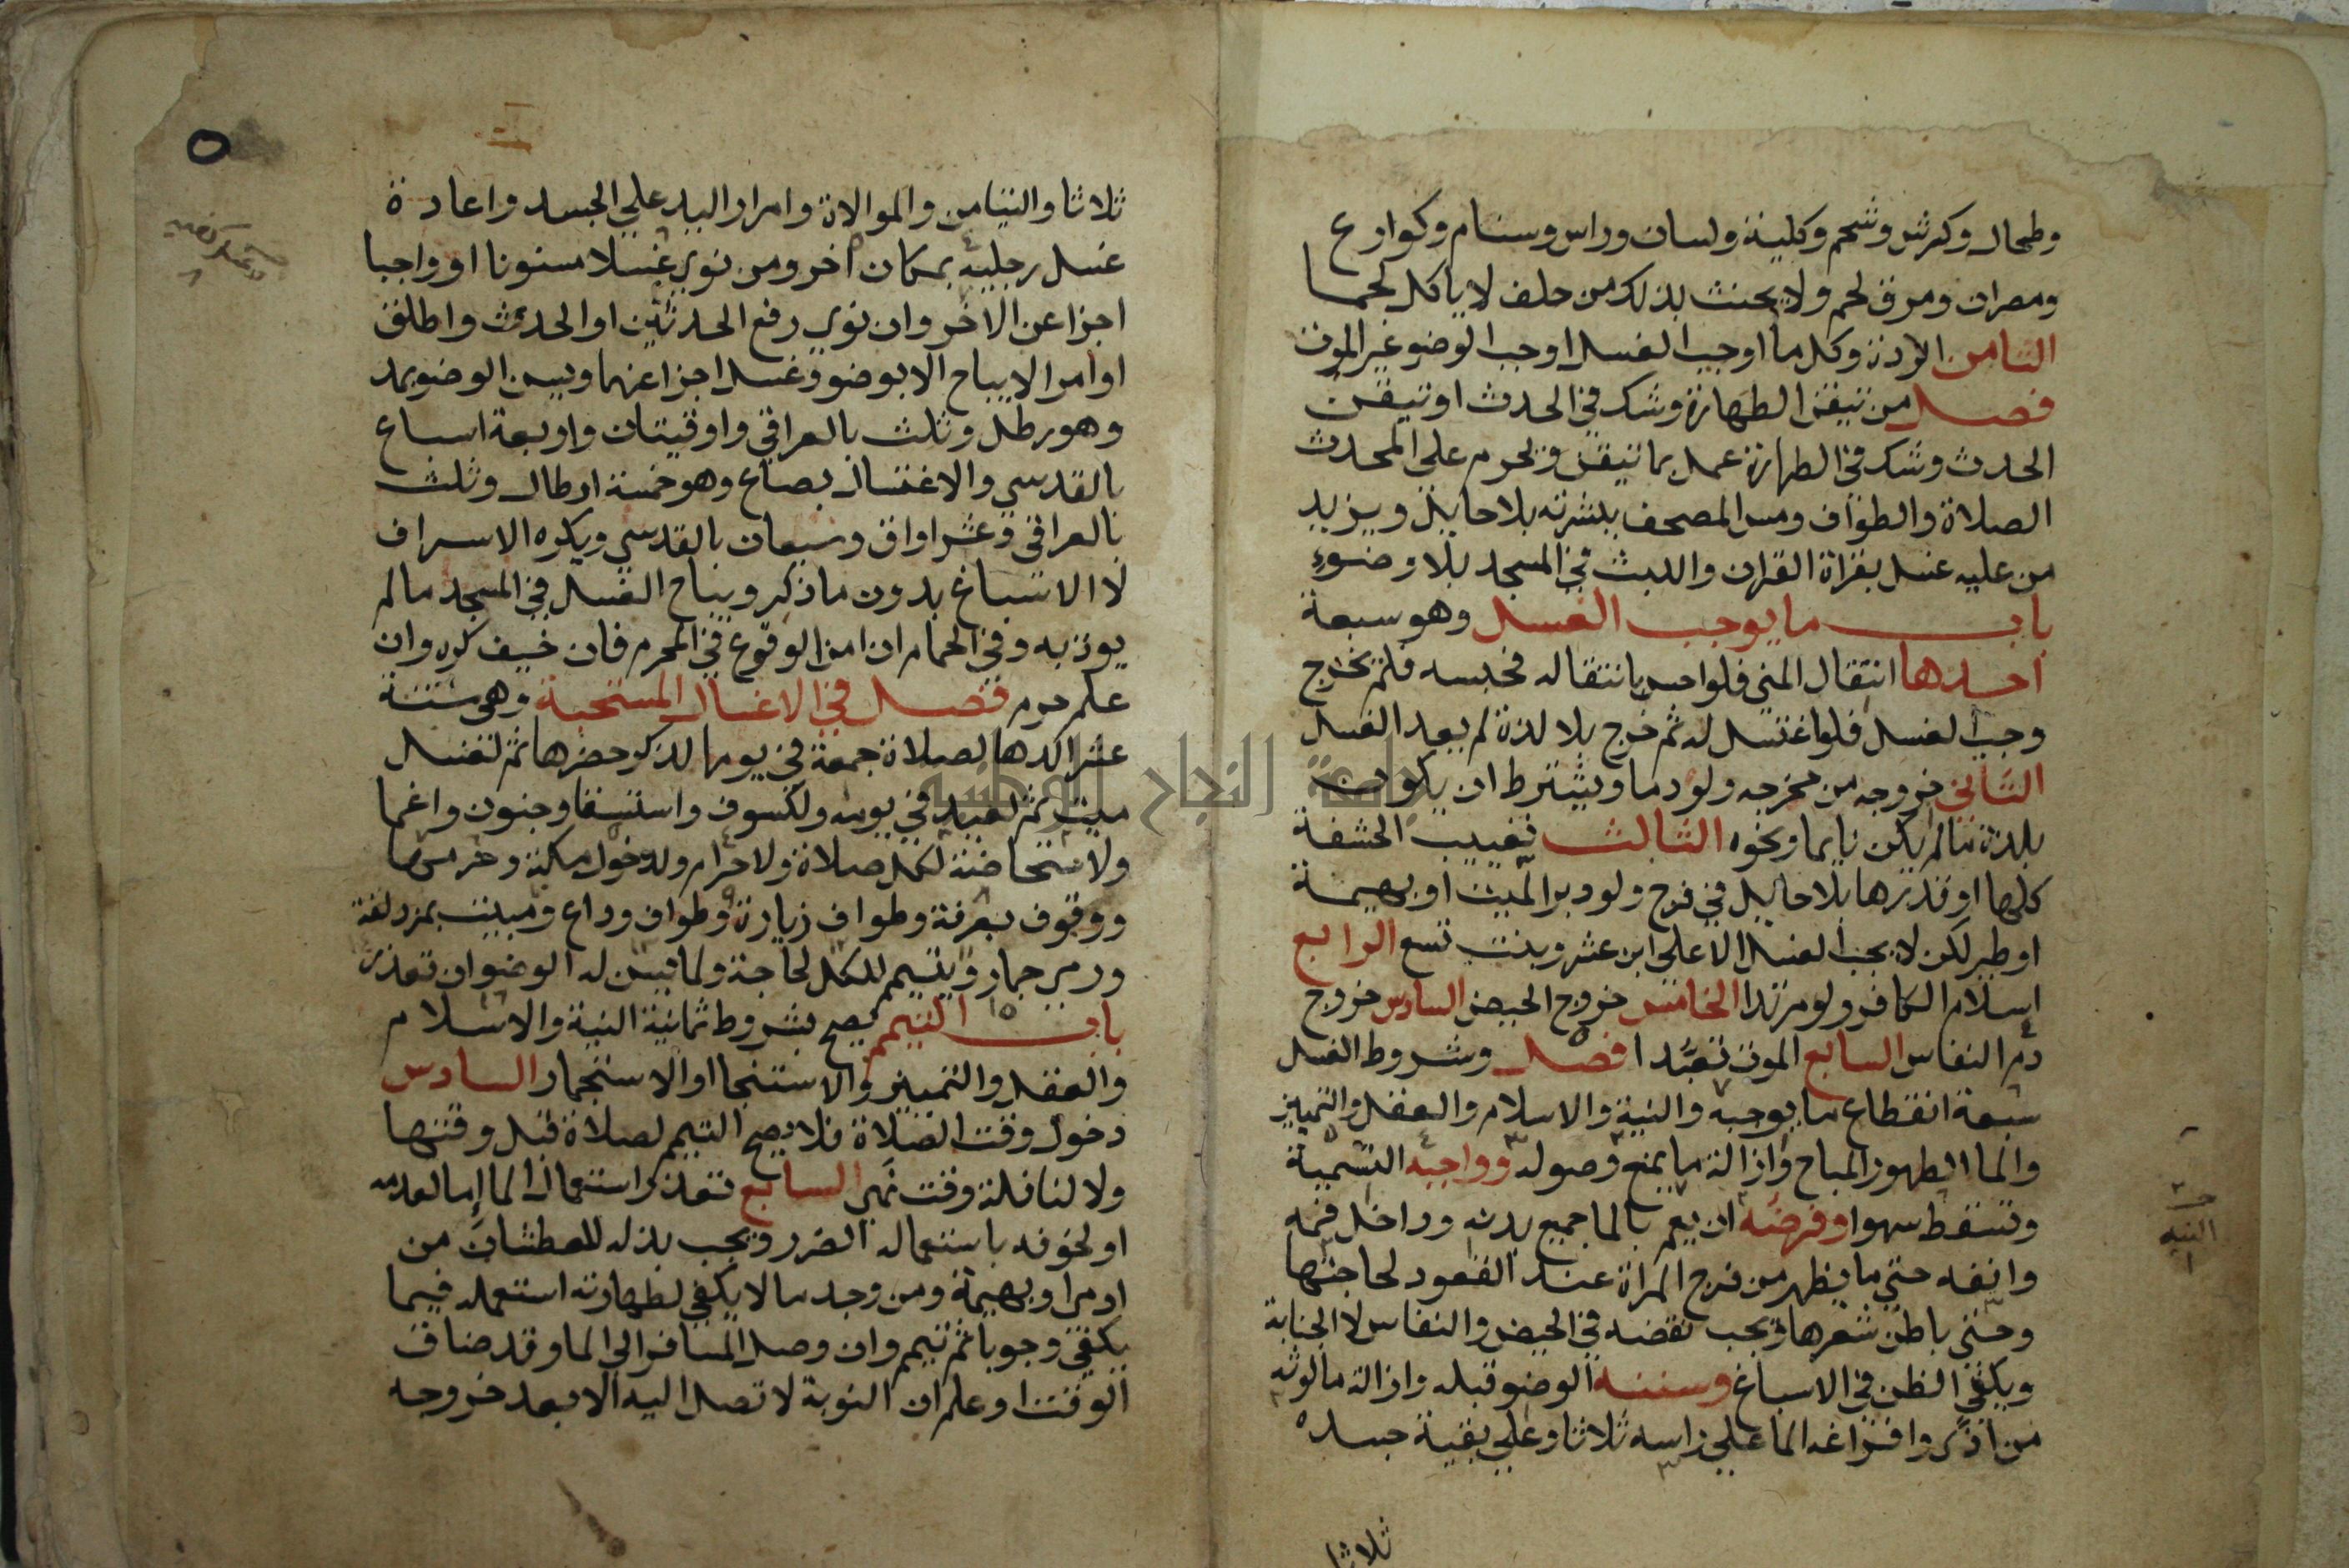 وطحال وكرش وشحم وكلية ولسان وراس وسنام وكوارع
ومصران ومرق لحم ولا يحنث بذلك من حلف لا ياكل لحما
الثامن الردة وكل ما اوجب الغسل اوجب الوضو غير الموت
فصل من تيقن الطهارة وشك في الحدث او تيقن
الحدث وشك في الطهارة عمل بما تيقن ويحرم على المحدث
الصلاة والطواف ومس المصحف ببشرته بلا حايل ويزيد
من عليه غسل بقراة القران واللبث في المسجد بلا وضوء
باب ما يوجب الغسل وهو سبعة
احدها انتقال المني فلو احس بانتقاله فحبسه فلم يخرج
وجب الغسل فلو اغتسل له ثم خرج بلا لذة لم يعد الغسل
الثاني خروجه من مخرجه ولو دما ويشترط ان يكون
بلذة ما لم يكن نايما ونحوه الثالث تغييب الحشفة
كلها او قدرها بلا حايل في فرج ولو دبرا لميت او بهيمة
او طير لكن لا يجب الغسل الا على ابن عشر وبنت تسع الرابع
اسلام الكافر ولو مرتدا الخامس خروج الحيض السادس خروج
دم النفاس السابع الموت تعبدا فصل وشروط الغسل
سبعة انقطاع ما يوجبه والنية والاسلام والعقل والتمييز
والما الطهور المباح وازالة ما يمنع وصوله وواجبه التسمية
وتسقط سهوا وفرضه ان يعم بالما جميع بدنه وداخل فمه
وانفه حتى ما يظهر من فرج المراة عند القعود لحاجتها
وحتى باطن شعرها ويجب نقضه في الحيض والنفاس لا الجنابة
ويكفي الظن في الاسباغ وسننه الوضو قبله وازالة ما لوثه
من اذى وافراغه الما على راسه ثلاثا وعلى بقية جسده
ثلاثا
النيه
ثلاثا والتيامن والموالاة وامرار اليد على الجسد واعادة
غسل رجليه بمكان اخر ومن نوى غسلا مسنونا او واجبا
اجزا عن الاخر وان نوى رفع الحدثين او الحدث واطلق
او امرا لا يباح الا بوضو وغسل اجزا عنهما ويسن الوضو بمد
وهو رطل وثلث بالعراقي واوقيتان واربعة اسباع
بالقدسي والاغتسال بصاع وهو خمسة ارطال وثلث
بالعراقي وعشر اواق وسبعان بالقدسي ويكره الاسراف
لا الاسباغ بدون ما ذكر ويباح الغسل في المسجد ما لم
يوذ به وفي الحمام ان امن الوقوع في المحرم فان خيف كره وان
علم حرم فصل في الاغسال المستحبة وهي ستة
عشر اكدها لصلاة جمعة في يومها لذكر حضرها ثم لغسل
ميت ثم لعيد في يومه ولكسوف واستسقا وجنون واغما
ولاستحاضة لكل صلاة ولاحرام ولدخول مكة وحرمها
ووقوف بعرفة وطواف زيارة وطواف وداع ومبيت بمزدلفة
ورمي جمار ويتيمم للكل لحاجة ولما يسن له الوضو ان تعذر
باب التيمم يصح بشروط ثمانية النية والاسلام
والعقل والتمييز والاستنجا او الاستجمار السادس
دخول وقت الصلاة فلا يصح التيمم لصلاة قبل وقتها
ولا لنافلة وقت نهي السابع تعذر استعمال الما اما لعدمه
او لخوفه باستعماله الضرر ويجب بذله للعطشان من
ادمي او بهيمة ومن وجد ما لا يكفي لطهارته استعمله فيما
يكفي وجوبا ثم تيمم وان وصل المسافر الى الما وقد ضاق
الوقت او علم ان النوبة لا تصل اليه الا بعد خروجه
جامعة النجاح الوطنية